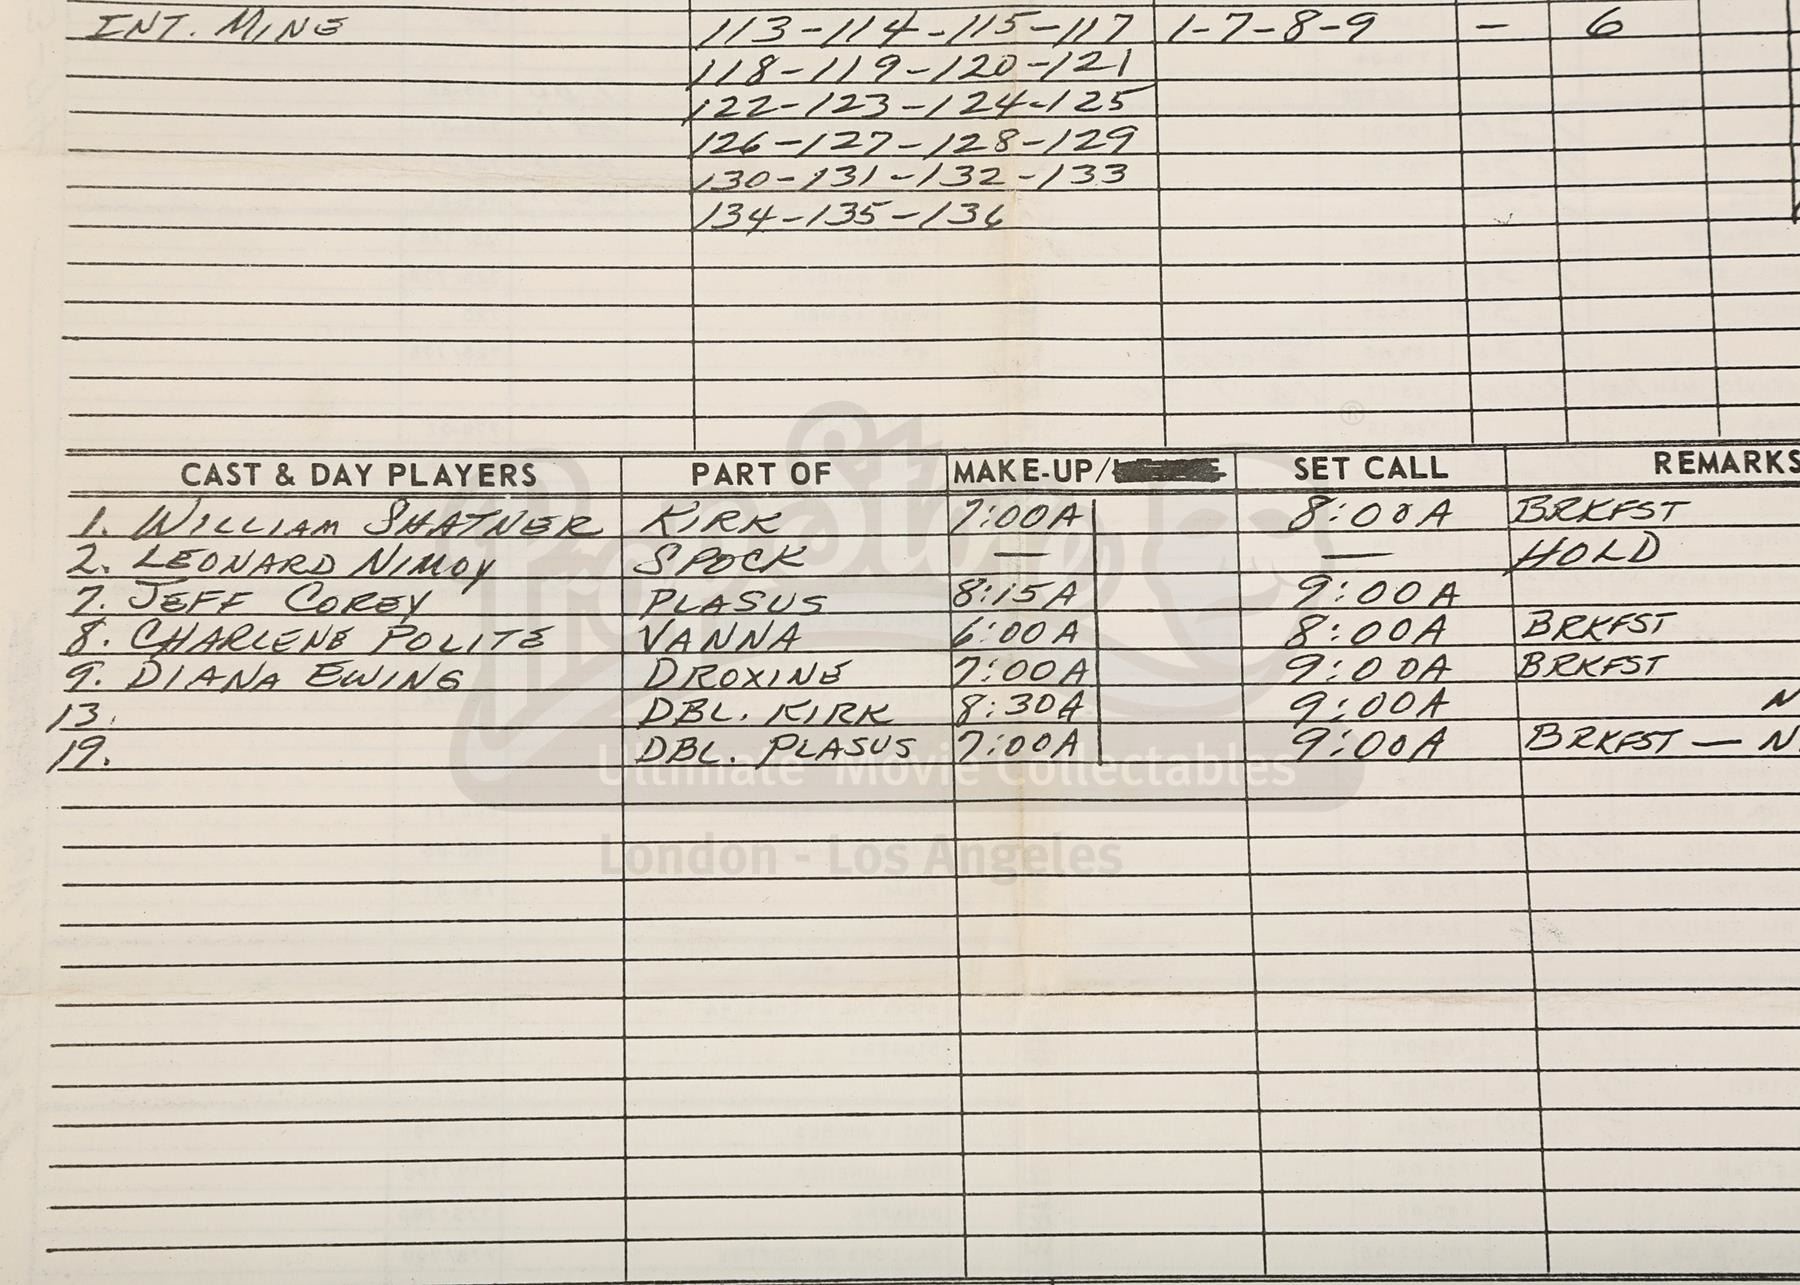 INT. MINE 113-114-115-117 1-7-8-9 - 6
118-119-120-121
122-123-124-125
126-127-128-129
130-131-132-133
134-135-136
CAST & DAY PLAYERS PART OF MAKE-UP/ SET CALL REMARKS
1. WILLIAM SHATNER KIRK 7:00A 8:00A BRKFST
2. LEONARD NIMOY SPOCK — — HOLD
7. JEFF COREY PLASUS 8:15A 9:00A
8. CHARLENE POLITE VANNA 6:00A 8:00A BRKFST
9. DIANA EWING DROXINE 7:00A 9:00A BRKFST
13. DBL. KIRK 8:30A 9:00A N
19. DBL. PLASUS 7:00A 9:00A BRKFST — N
Propstore ®
Ultimate Movie Collectables
London - Los Angeles